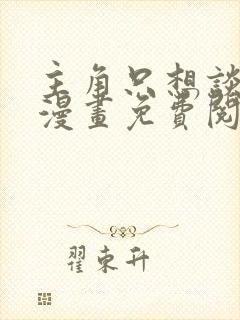 主角只想談
漫畫免費閱
翟東升